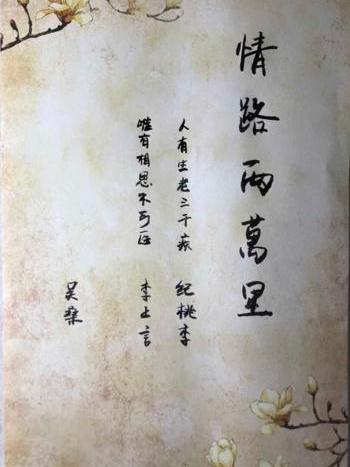 情路兩萬里
人有生老三千疾 纪桃李
唯有相思不可医 李止言
吴桑